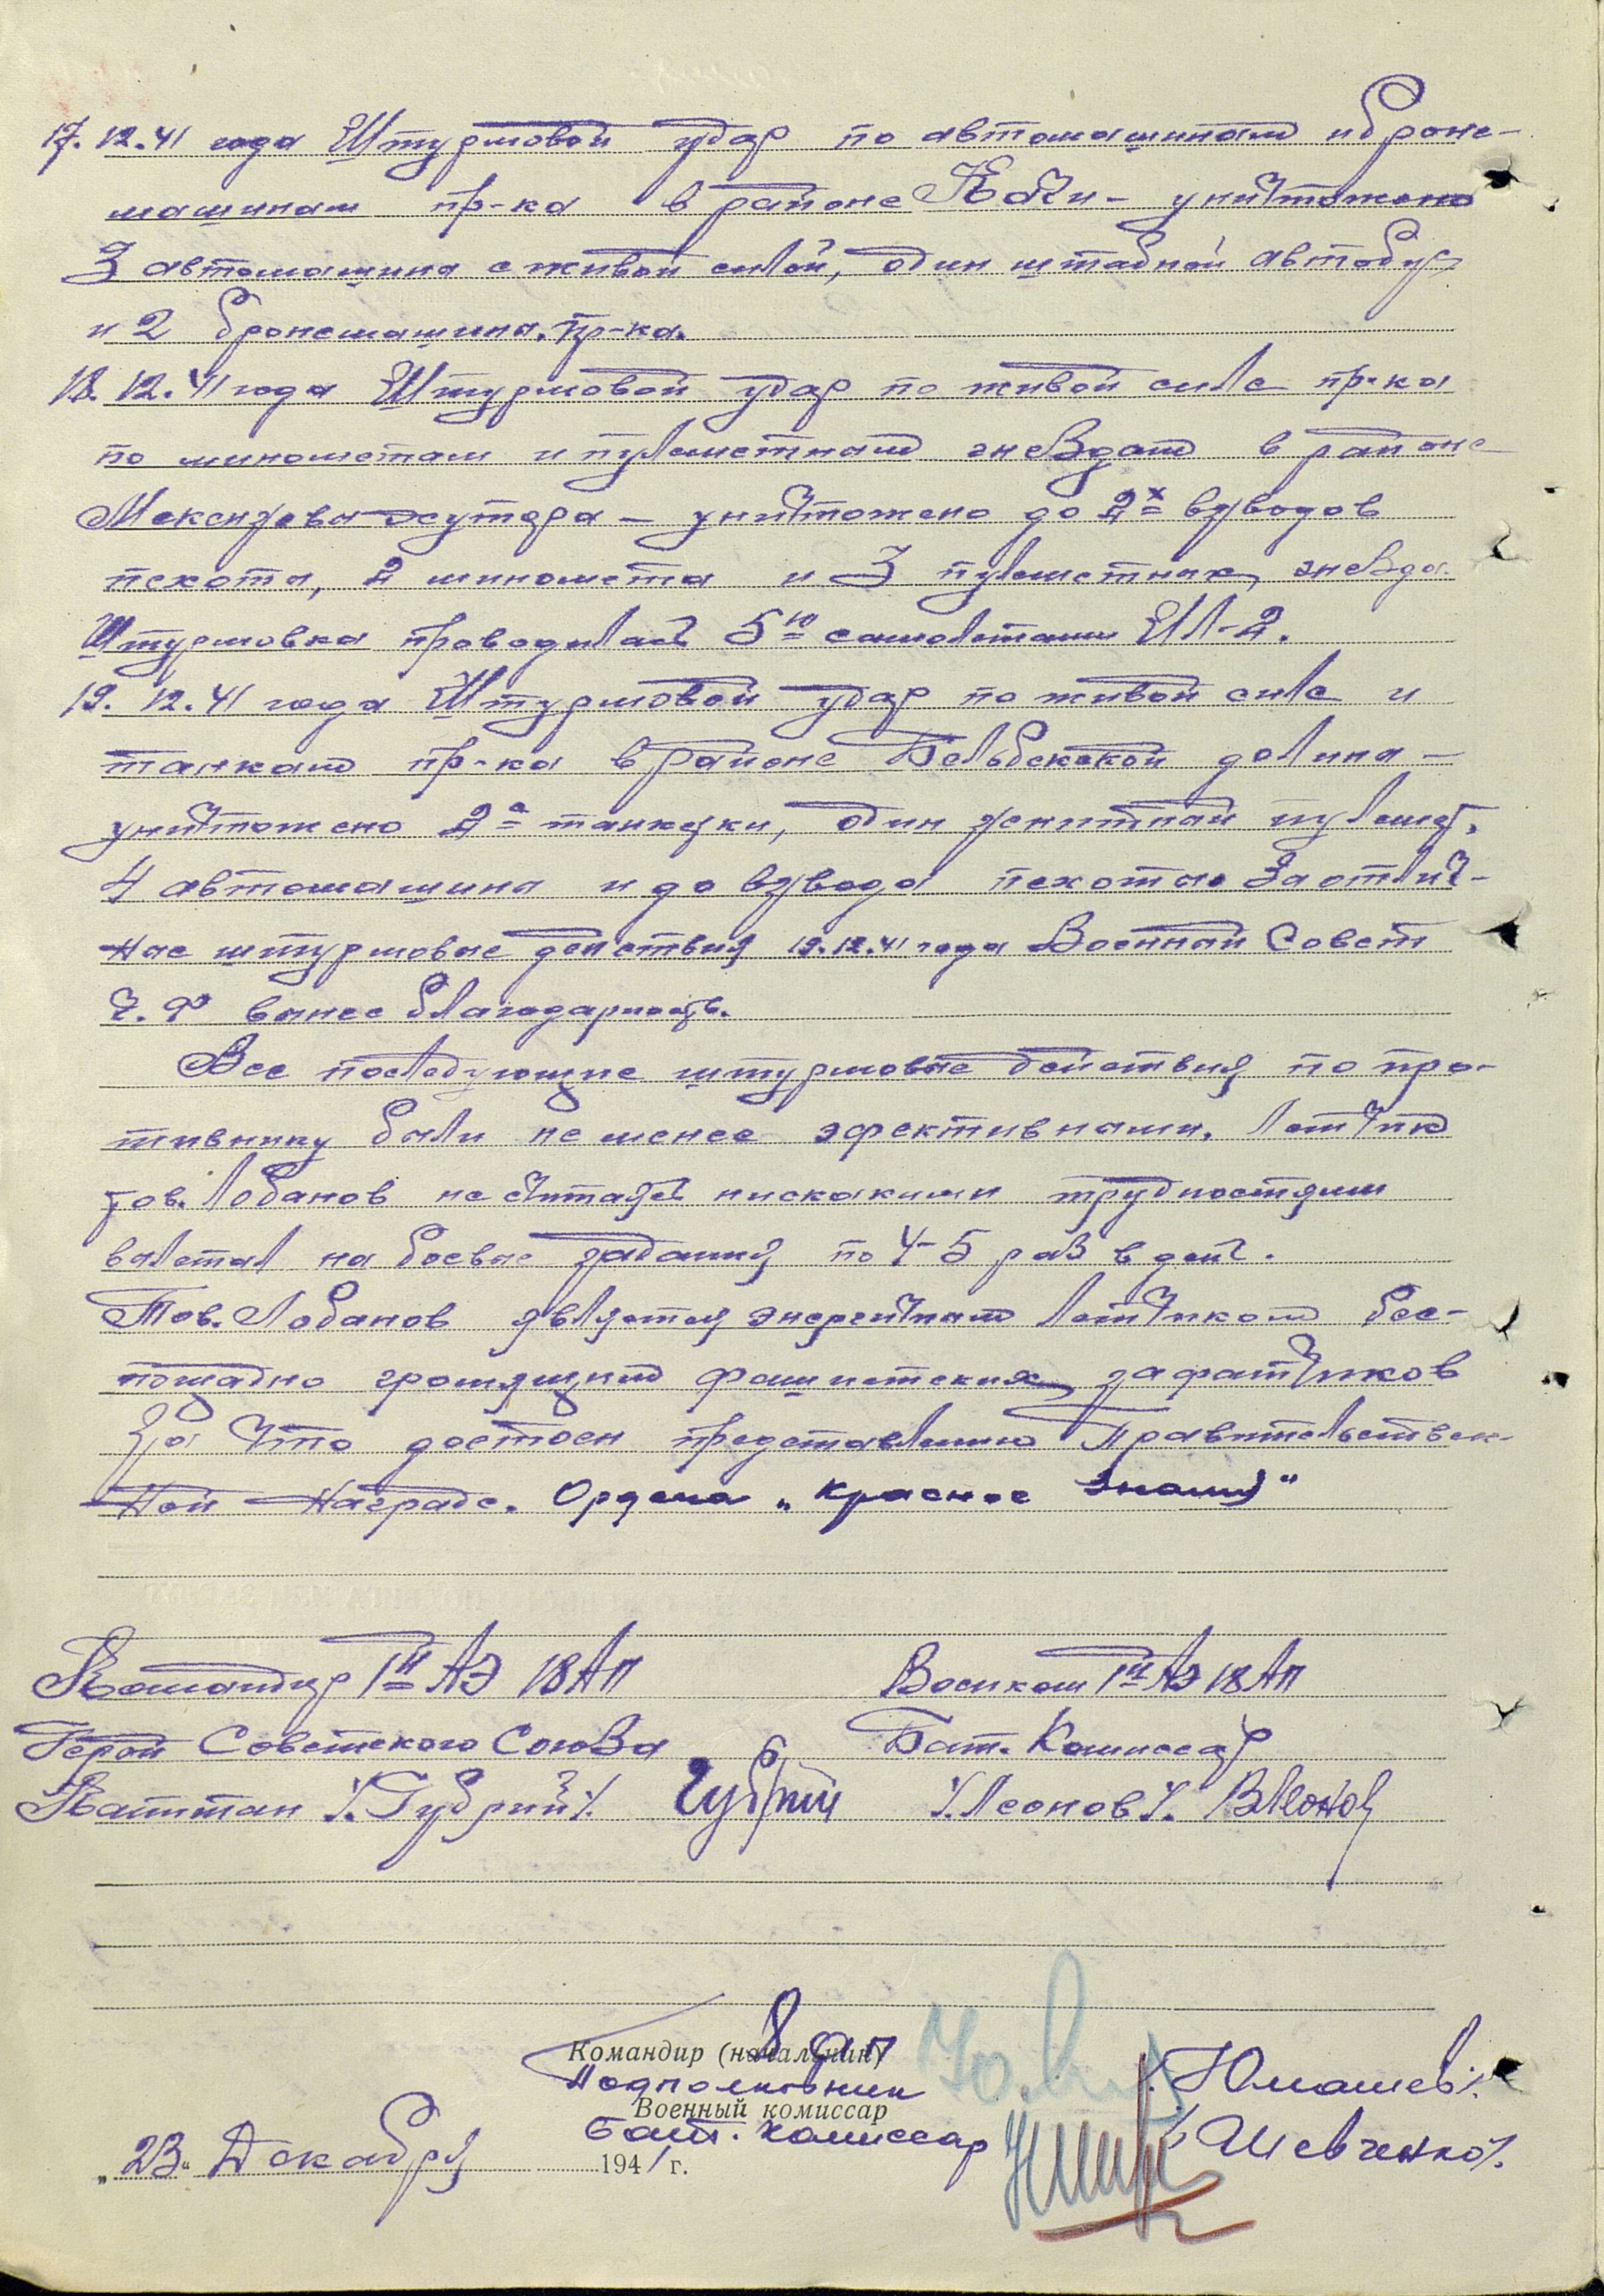 17.12.41 года Штурмовой удар по автомашинам и броне-
машинам пр-ка в районе Качи - уничтожено
3 автомашины с живой силой, один штабной автобус
и 2 бронемашины. пр-ка.
18.12.41 года Штурмовой удар по живой силе пр-ка
по минометам и пулеметным гнездам в районе
Мекензева хутора — уничтожено до 2х взводов
пехоты, 2 миномета и 3 пулеметных гнезда.
Штурмовка проводилась 5ю самолетами ИЛ-2.
19.12.41 года Штурмовой удар по живой силе и
танкам пр-ка в районе Бельбекской долины —
уничтожено 2е танкетки, один зенитный пулемет,
4 автомашины и до взвода пехоты. За отлич-
ные штурмовые действия 19.12.41 года Военный Совет
Ч.Ф вынес благодарность.
Все последующие штурмовые действия по про-
тивнику были не менее эфективными. Летчик
тов. Лобанов не считаясь нискакими трудностями
вылетал на боевые задания по 4-5 раз в день.
Тов. Лобанов является энергичным летчиком бес-
пощадно громящим фашистских захватчиков
За что достоен представлению Правительствен-
ной Награде. Ордена „Красное Знамя"
Командир 1й АЭ 18 АП Военком 1й АЭ 18 АП
Герой Советского Союза Бат. Комиссар
Капитан /.Губрий/. Губрий /.Леонов/. ВЛеонов
Командир (начальник) 18 ап
Подполковник /.Юмашев/.
Военный комиссар
Бат. Комиссар /.Шевченко/.
„23" Декабря 1941 г.